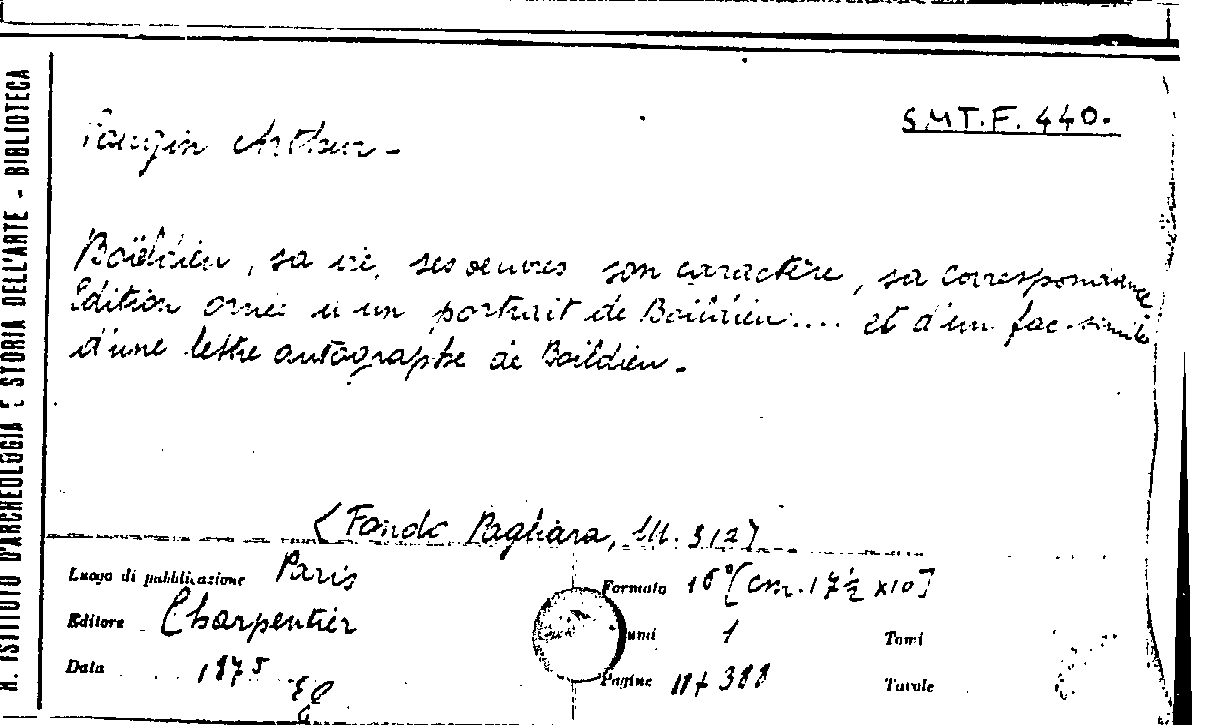 R. ISTITUTO D'ARCHEOLOGIA E STORIA DELL'ARTE - BIBLIOTECA
S.M.T.F. 440.
Pougin Arthur -
Boïeldieu, sa vie, ses oeuvres son caractère, sa correspondance
Edition ornée d'un portrait de Boïeldieu.... et d'un fac-simile
d'une lettre autographe de Boïeldieu.-
(Fondo Pagliara, III. 312)
Luogo di pubblicazione Paris
Formato 16° [cm. 17½ x 10]
Editore Charpentier
umi 1
Tomi
Data 1875
Pagine 388
Tavole